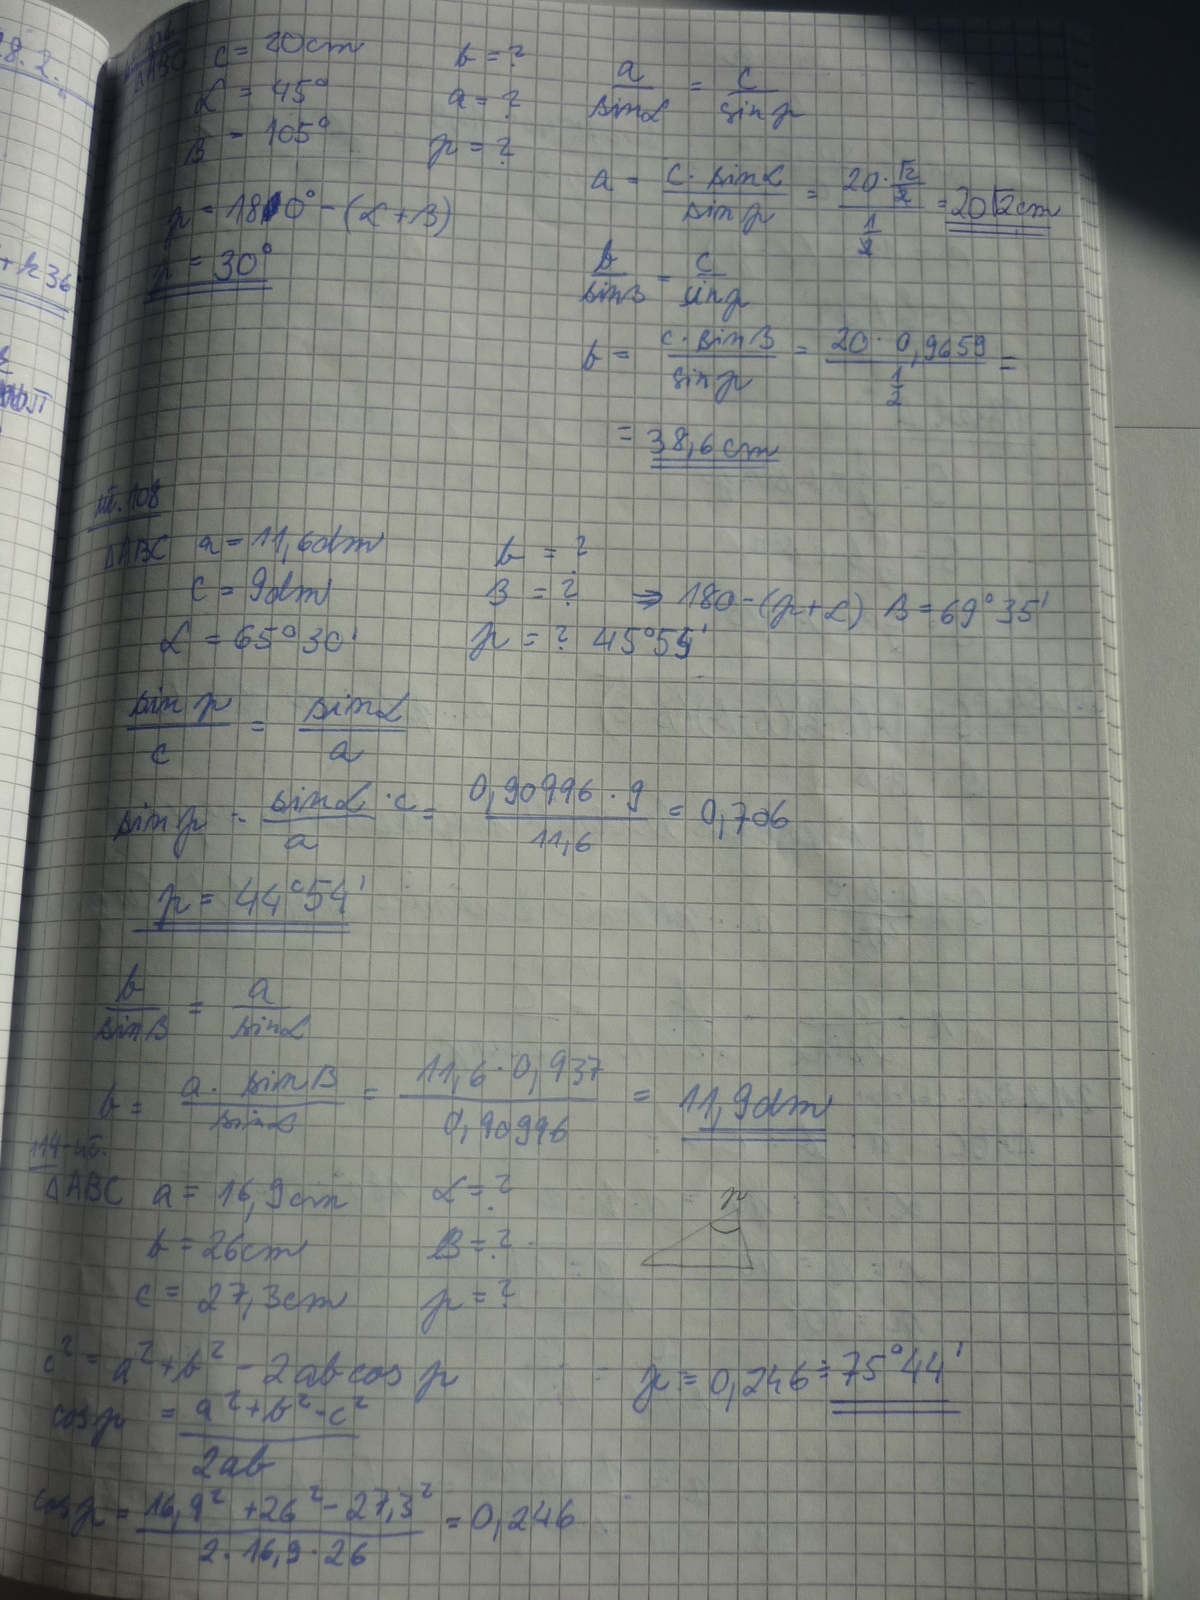 8.2.
+k36
ΔABC c = 20cm b = ?
α = 45° a = ?
β = 105° γ = ?
γ = 180° - (α+β)
γ = 30°
a/sinα = c/sinγ
a = c·sinα/sinγ = (20·√2/2)/(1/2) = 20√2cm
b/sinβ = c/sinγ
b = c·sinβ/sinγ = (20·0,9659)/(1/2) =
= 38,6cm
108
ΔABC a = 11,6dm b = ?
c = 9dm β = ? ⇒ 180-(γ+α) β = 69°35'
α = 65°30' γ = ? 45°54'
sinγ/c = sinα/a
sinγ = sinα/a · c = 0,90996·9/11,6 = 0,706
γ = 44°54'
b/sinβ = a/sinα
b = a·sinβ/sinα = 11,6·0,937/0,90996 = 11,9dm
114
ΔABC a = 16,9cm α = ?
b = 26cm β = ?
c = 27,3cm γ = ?
γ
c² = a²+b² - 2abcosγ
γ = 0,246 = 75°44'
cosγ = a²+b²-c²/2ab
cosγ = 16,9²+26²-27,3²/2·16,9·26 = 0,246